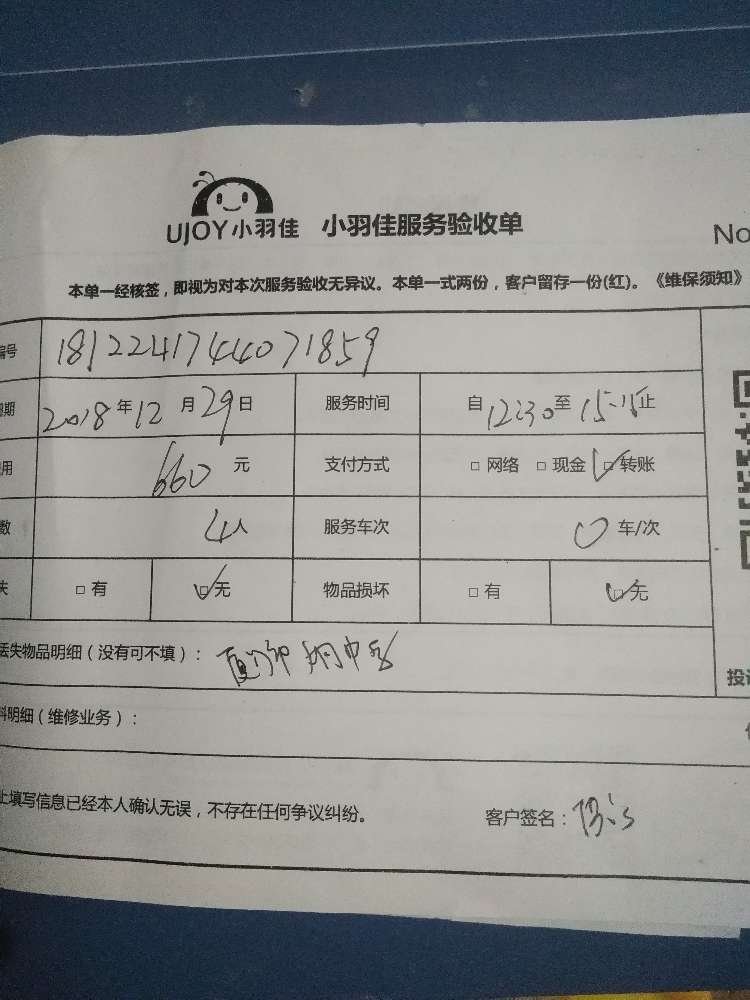 UJOY小羽佳 小羽佳服务验收单
No
本单一经核签，即视为对本次服务验收无异议。本单一式两份，客户留存一份(红)。《维保须知》
编号 18122417444071859
期 2018年12月29日 服务时间 自12:30至15:15止
用 660元 支付方式 □网络 □现金 □转账
数 4人 服务车次 0车/次
失 □有 □无 物品损坏 □有 □无
丢失物品明细（没有可不填）：
料明细（维修业务）：
投诉
上填写信息已经本人确认无误，不存在任何争议纠纷。 客户签名：